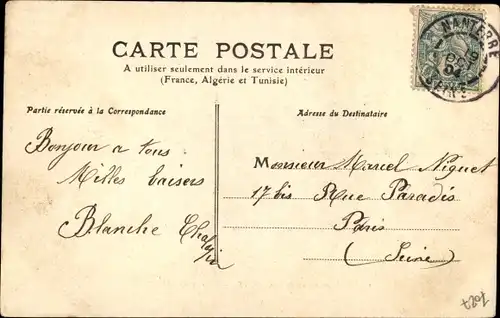 CARTE POSTALE
A utiliser seulement dans le service intérieur
(France, Algérie et Tunisie)
Partie réservée à la Correspondance
Adresse du Destinataire
NANTERRE
04
Bonjour a tous
Milles baisers
Blanche
Monsieur Marcel Niquet
17 bis Rue Paradis
Paris
(Seine)